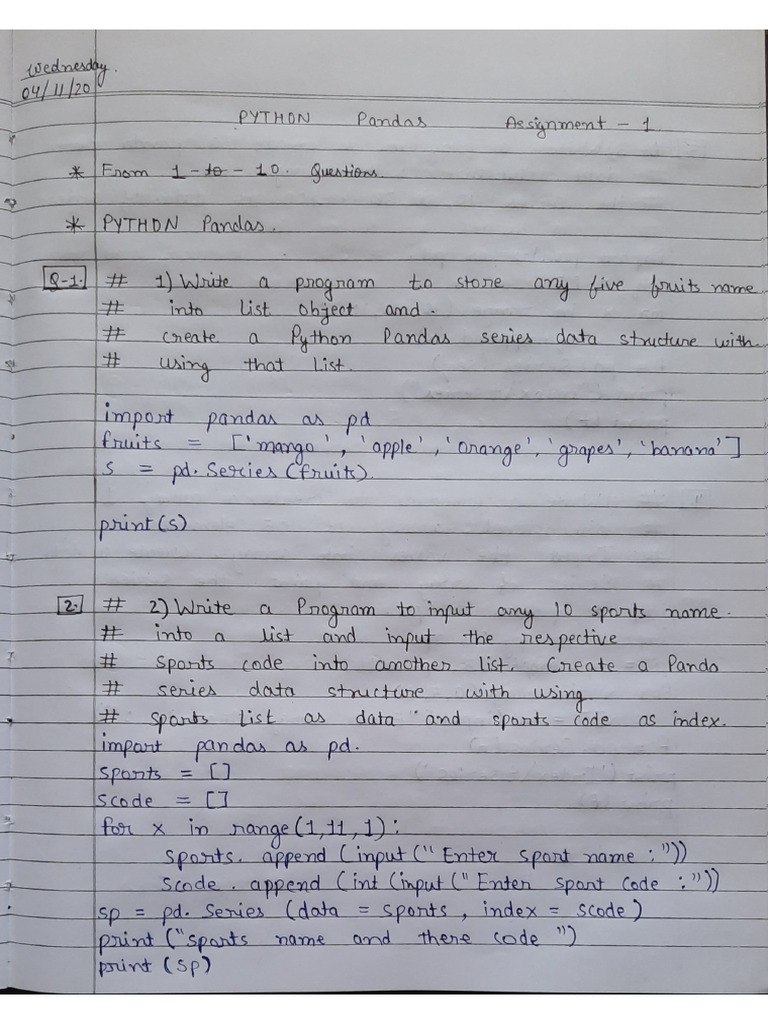 Wednesday.
04/11/20
PYTHON Pandas Assignment - 1
* From 1 - to - 10. Questions.
* PYTHON Pandas.
Q-1. # 1) Write a program to store any five fruits name
# into List object and.
# create a Python Pandas series data structure with.
# using that List.
import pandas as pd
fruits = ['mango', 'apple', 'orange', 'grapes', 'banana']
s = pd. Series (fruits).
print (s)
2. # 2) Write a Program to input any 10 sports name.
# into a list and input the respective
# sports code into another list. Create a Panda
# series data structure with using.
# sports List as data and sports code as index.
import pandas as pd.
sports = []
scode = []
for x in range (1,11,1):
sports. append (input ("Enter sport name :"))
scode . append (int (input ("Enter sport code :"))
sp = pd. Series (data = sports , index = scode)
print ("sports name and there code ")
print (sp)